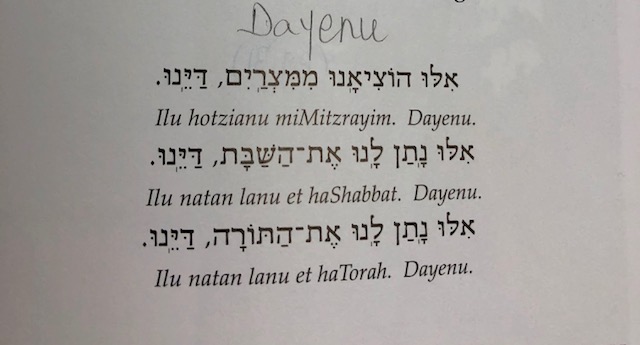 Dayenu
אִלּוּ הוֹצִיאָֽנוּ מִמִּצְרַֽיִם, דַּיֵּֽנוּ.
Ilu hotzianu miMitzrayim. Dayenu.
אִלּוּ נָֽתַן לָֽנוּ אֶת־הַשַּׁבָּת, דַּיֵּֽנוּ.
Ilu natan lanu et haShabbat. Dayenu.
אִלּוּ נָֽתַן לָֽנוּ אֶת־הַתּוֹרָה, דַּיֵּֽנוּ.
Ilu natan lanu et haTorah. Dayenu.